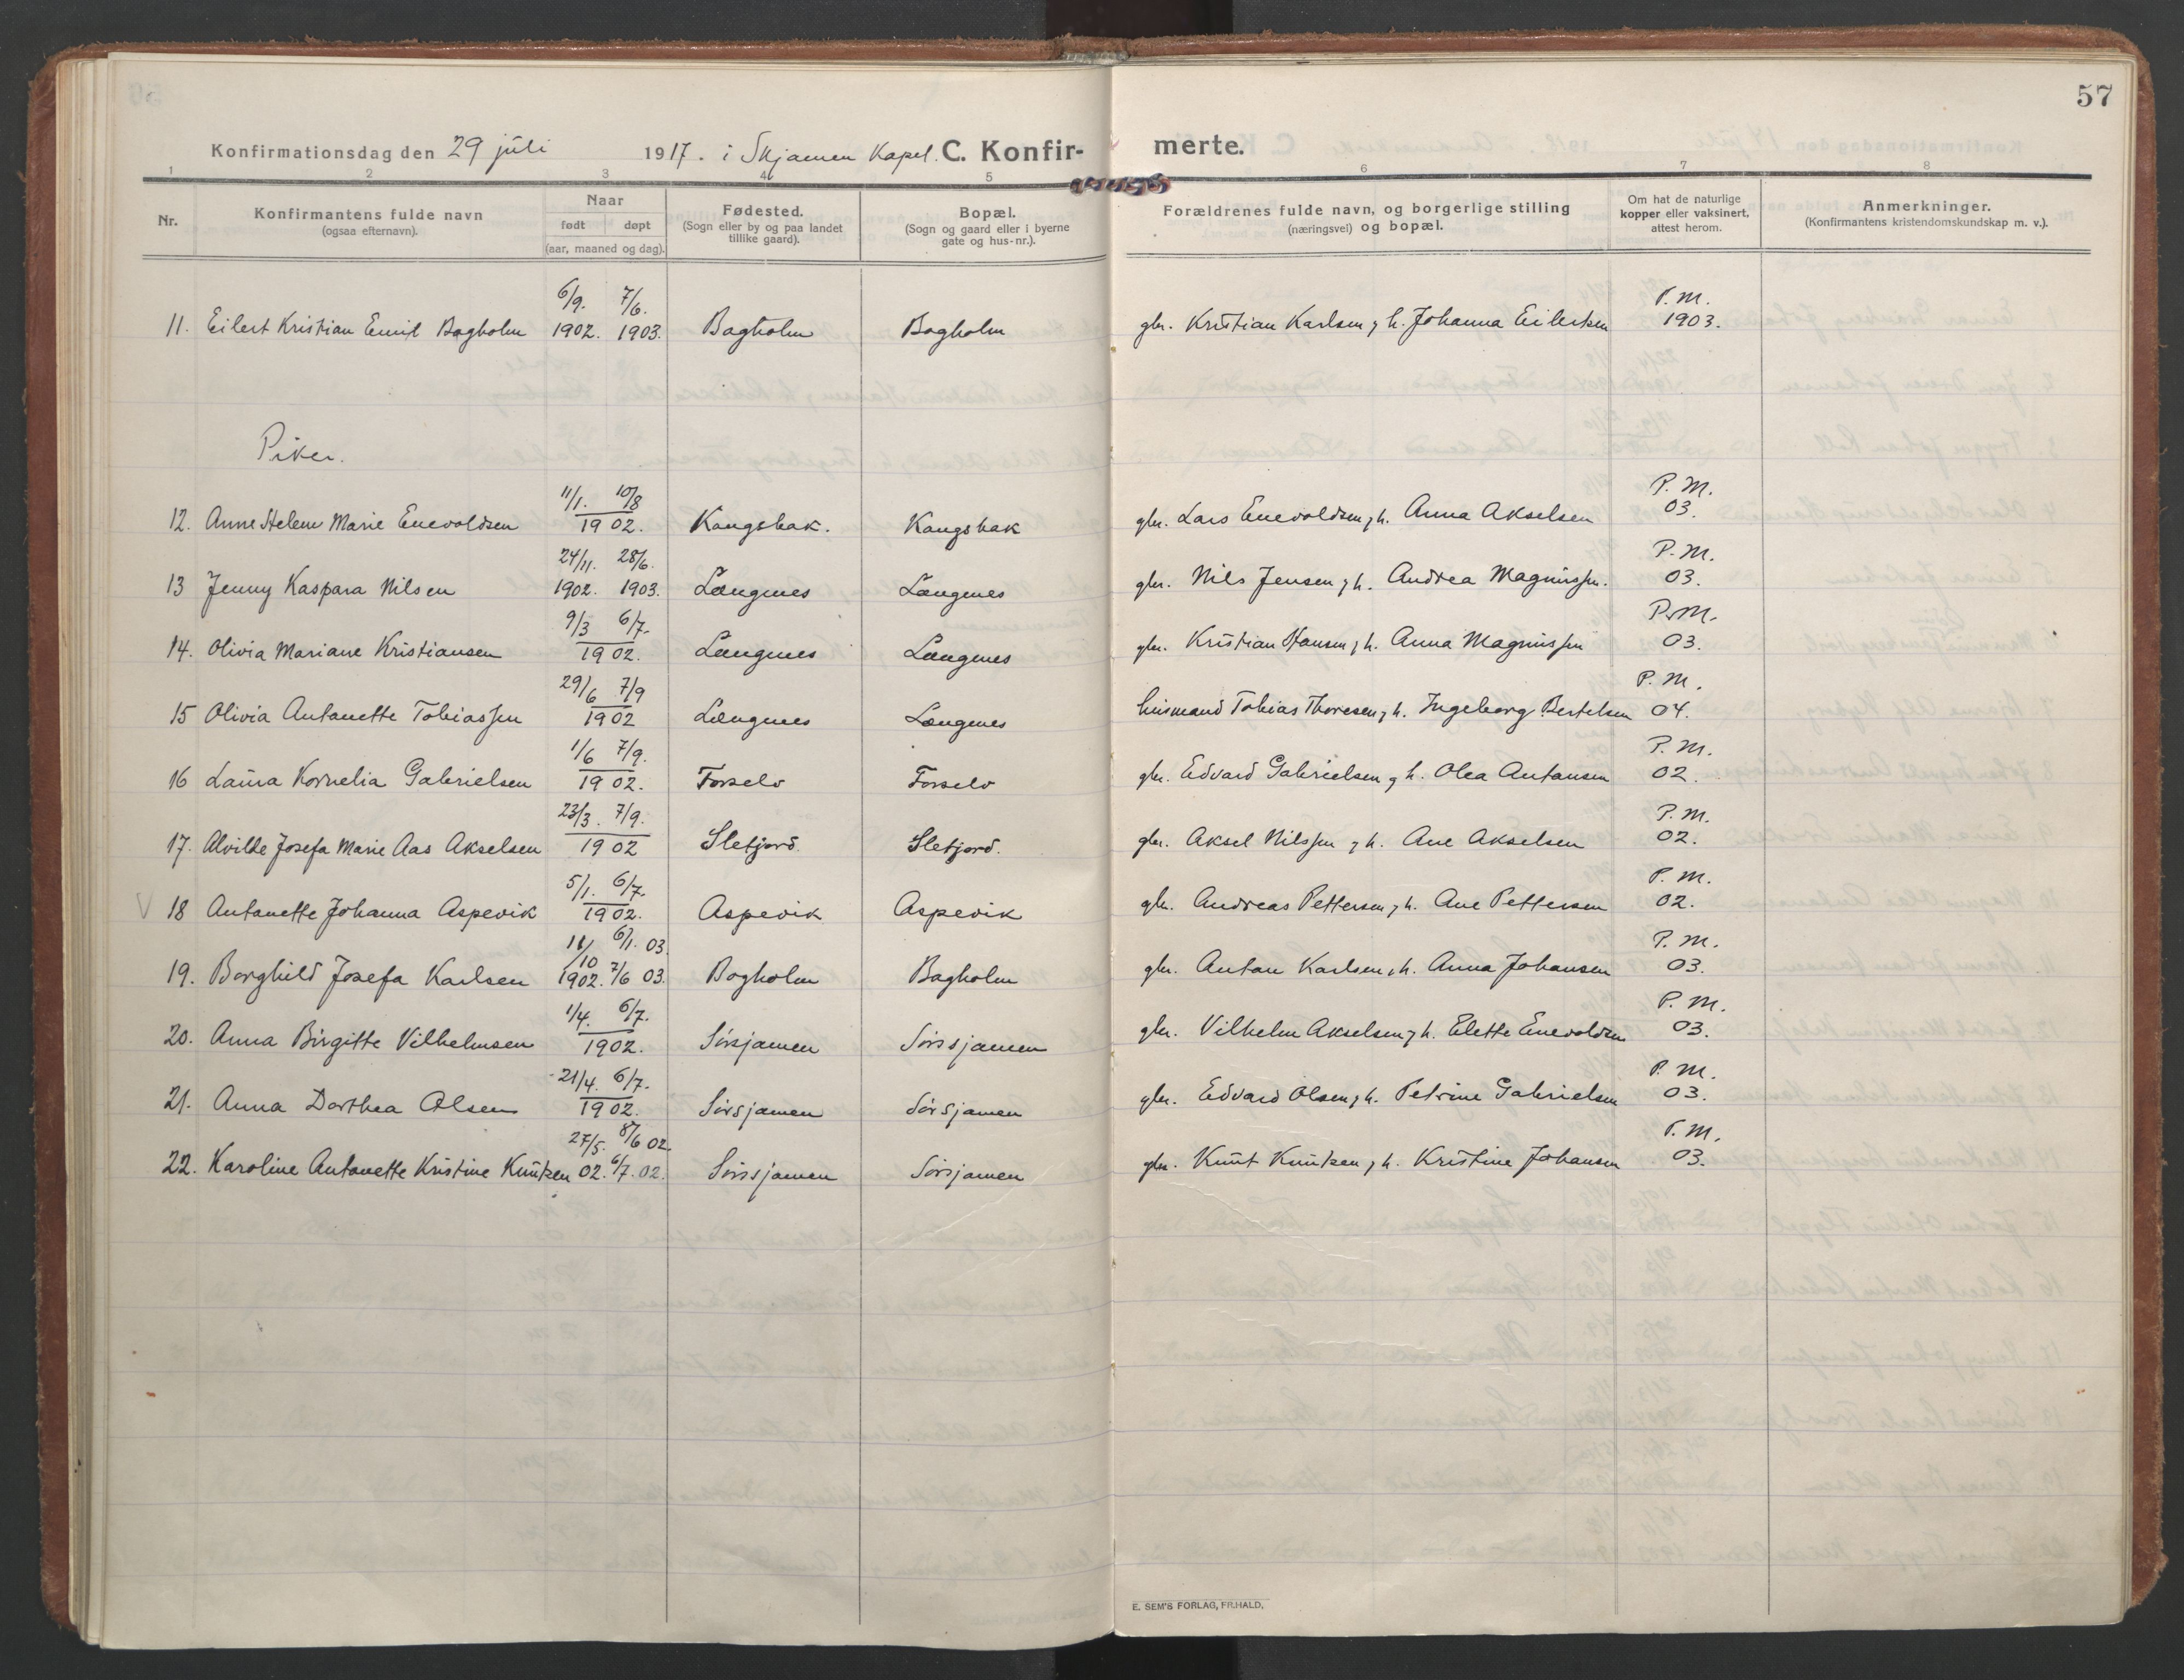 57
Konfirmationsdag den 29 juli 1917. i Skjomen Kapel. C. Konfirmerte.
1 2 3 4 5 6 7 8
Nr. Konfirmantens fulde navn (ogsaa efternavn). Naar født døpt (aar, maaned og dag). Fødested. (Sogn eller by og paa landet tillike gaard). Bopæl. (Sogn og gaard eller i byerne gate og hus-nr.). Forældrenes fulde navn, og borgerlige stilling (næringsvei) og bopæl. Om hat de naturlige kopper eller vaksinert, attest herom. Anmerkninger. (Konfirmantens kristendomskundskap m. v.).
11. Eilert Kristian Emil Bogholm 6/9. 1902. 7/6. 1903. Bogholm Bogholm gbr. Kristian Karlsen, h. Johanna Eilertsen P.M. 1903.
Piker.
12. Anne Helene Marie Enevoldsen 11/1. 10/8 1902. Kongsbak. Kongsbak gbr. Lars Enevoldsen, h. Anna Akselsen P.M. 03.
13 Jenny Kaspara Nilsen 24/11. 1902. 28/6. 1903. Langnes Langnes gbr. Nils Jensen, h. Andrea Magnussen. P.M. 03.
14. Olivia Mariane Kristiansen 9/3 6/7. 1902. Langnes Langnes gbr. Kristian Hansen, h. Anna Magnussen P.M. 03.
15 Olivia Antonette Tobiassen 29/6 7/9 1902 Langnes Langnes husmand Tobias Thoresen, h. Ingeborg Bertelsen P.M. 04.
16 Laura Kornelia Gabrielsen 1/6 7/9. 1902. Forselv Forselv gbr. Edvard Gabrielsen, h. Olea Antonsen P.M. 02.
17. Alvilde Josefa Marie Aas Akselsen 23/3. 7/9. 1902 Sletjord. Sletjord. gbr. Aksel Nilssen, h. Ane Akselsen P.M. 02.
V 18 Antonette Johanna Aspevik 5/1. 6/7. 1902. Aspevik Aspevik gbr. Andreas Pettersen, h. Ane Pettersen P.M. 02.
19. Borghild Josefa Karlsen 11/10 1902. 6/1. 03 7/6 03. Bogholm Bogholm gbr. Anton Karlsen, h. Anna Johansen P.M. 03.
20. Anna Birgitte Vilhelmsen 1/4. 6/7. 1902. Sørsjomen Sørsjomen gbr. Vilhelm Akselsen, h. Elette Enevoldsen P.M. 03.
21. Anna Dorthea Olsen 21/4. 6/7. 1902. Sørsjomen Sørsjomen gbr. Edvard Olsen, h. Petrine Gabrielsen P.M. 03.
22. Karoline Antonette Kristine Knutsen 27/5. 02. 8/6 02 6/7. 02. Sørsjomen Sørsjomen gbr. Knut Knutsen, h. Kristine Johansen P.M. 03.
E. SEM'S FORLAG, FR.HALD,